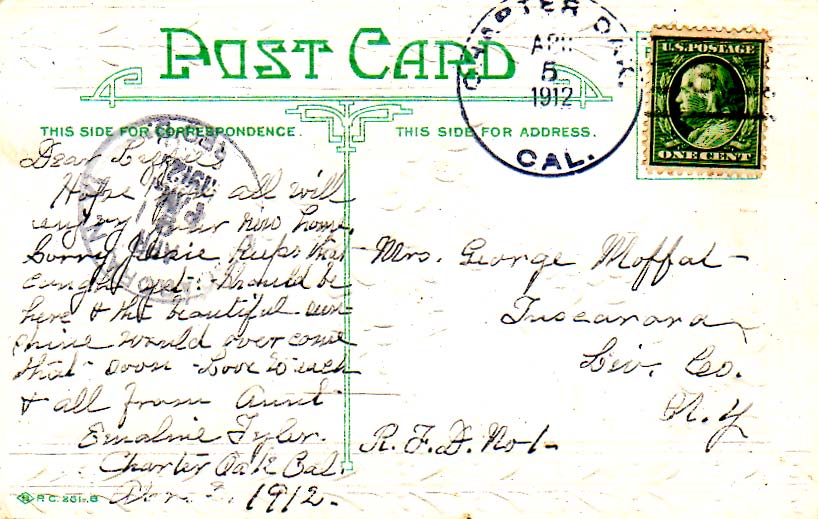 POST CARD
CHARTER OAK.
APR
5
1912
CAL.
U.S. POSTAGE
ONE CENT
THIS SIDE FOR CORRESPONDENCE.
THIS SIDE FOR ADDRESS.
Dear
Hope you all will
enjoy your new home.
Sorry Jessie keeps that
cough yet. Should be
here & the beautiful sun
shine would over come
that soon - Love to each
& all from Aunt
Emaline Tyler.
Charter Oak Cal.
1912-
Mrs. George Moffat
Tuscarora
Liv. Co.
N.Y
R.F.D. No 1-
N R.C. 251.B